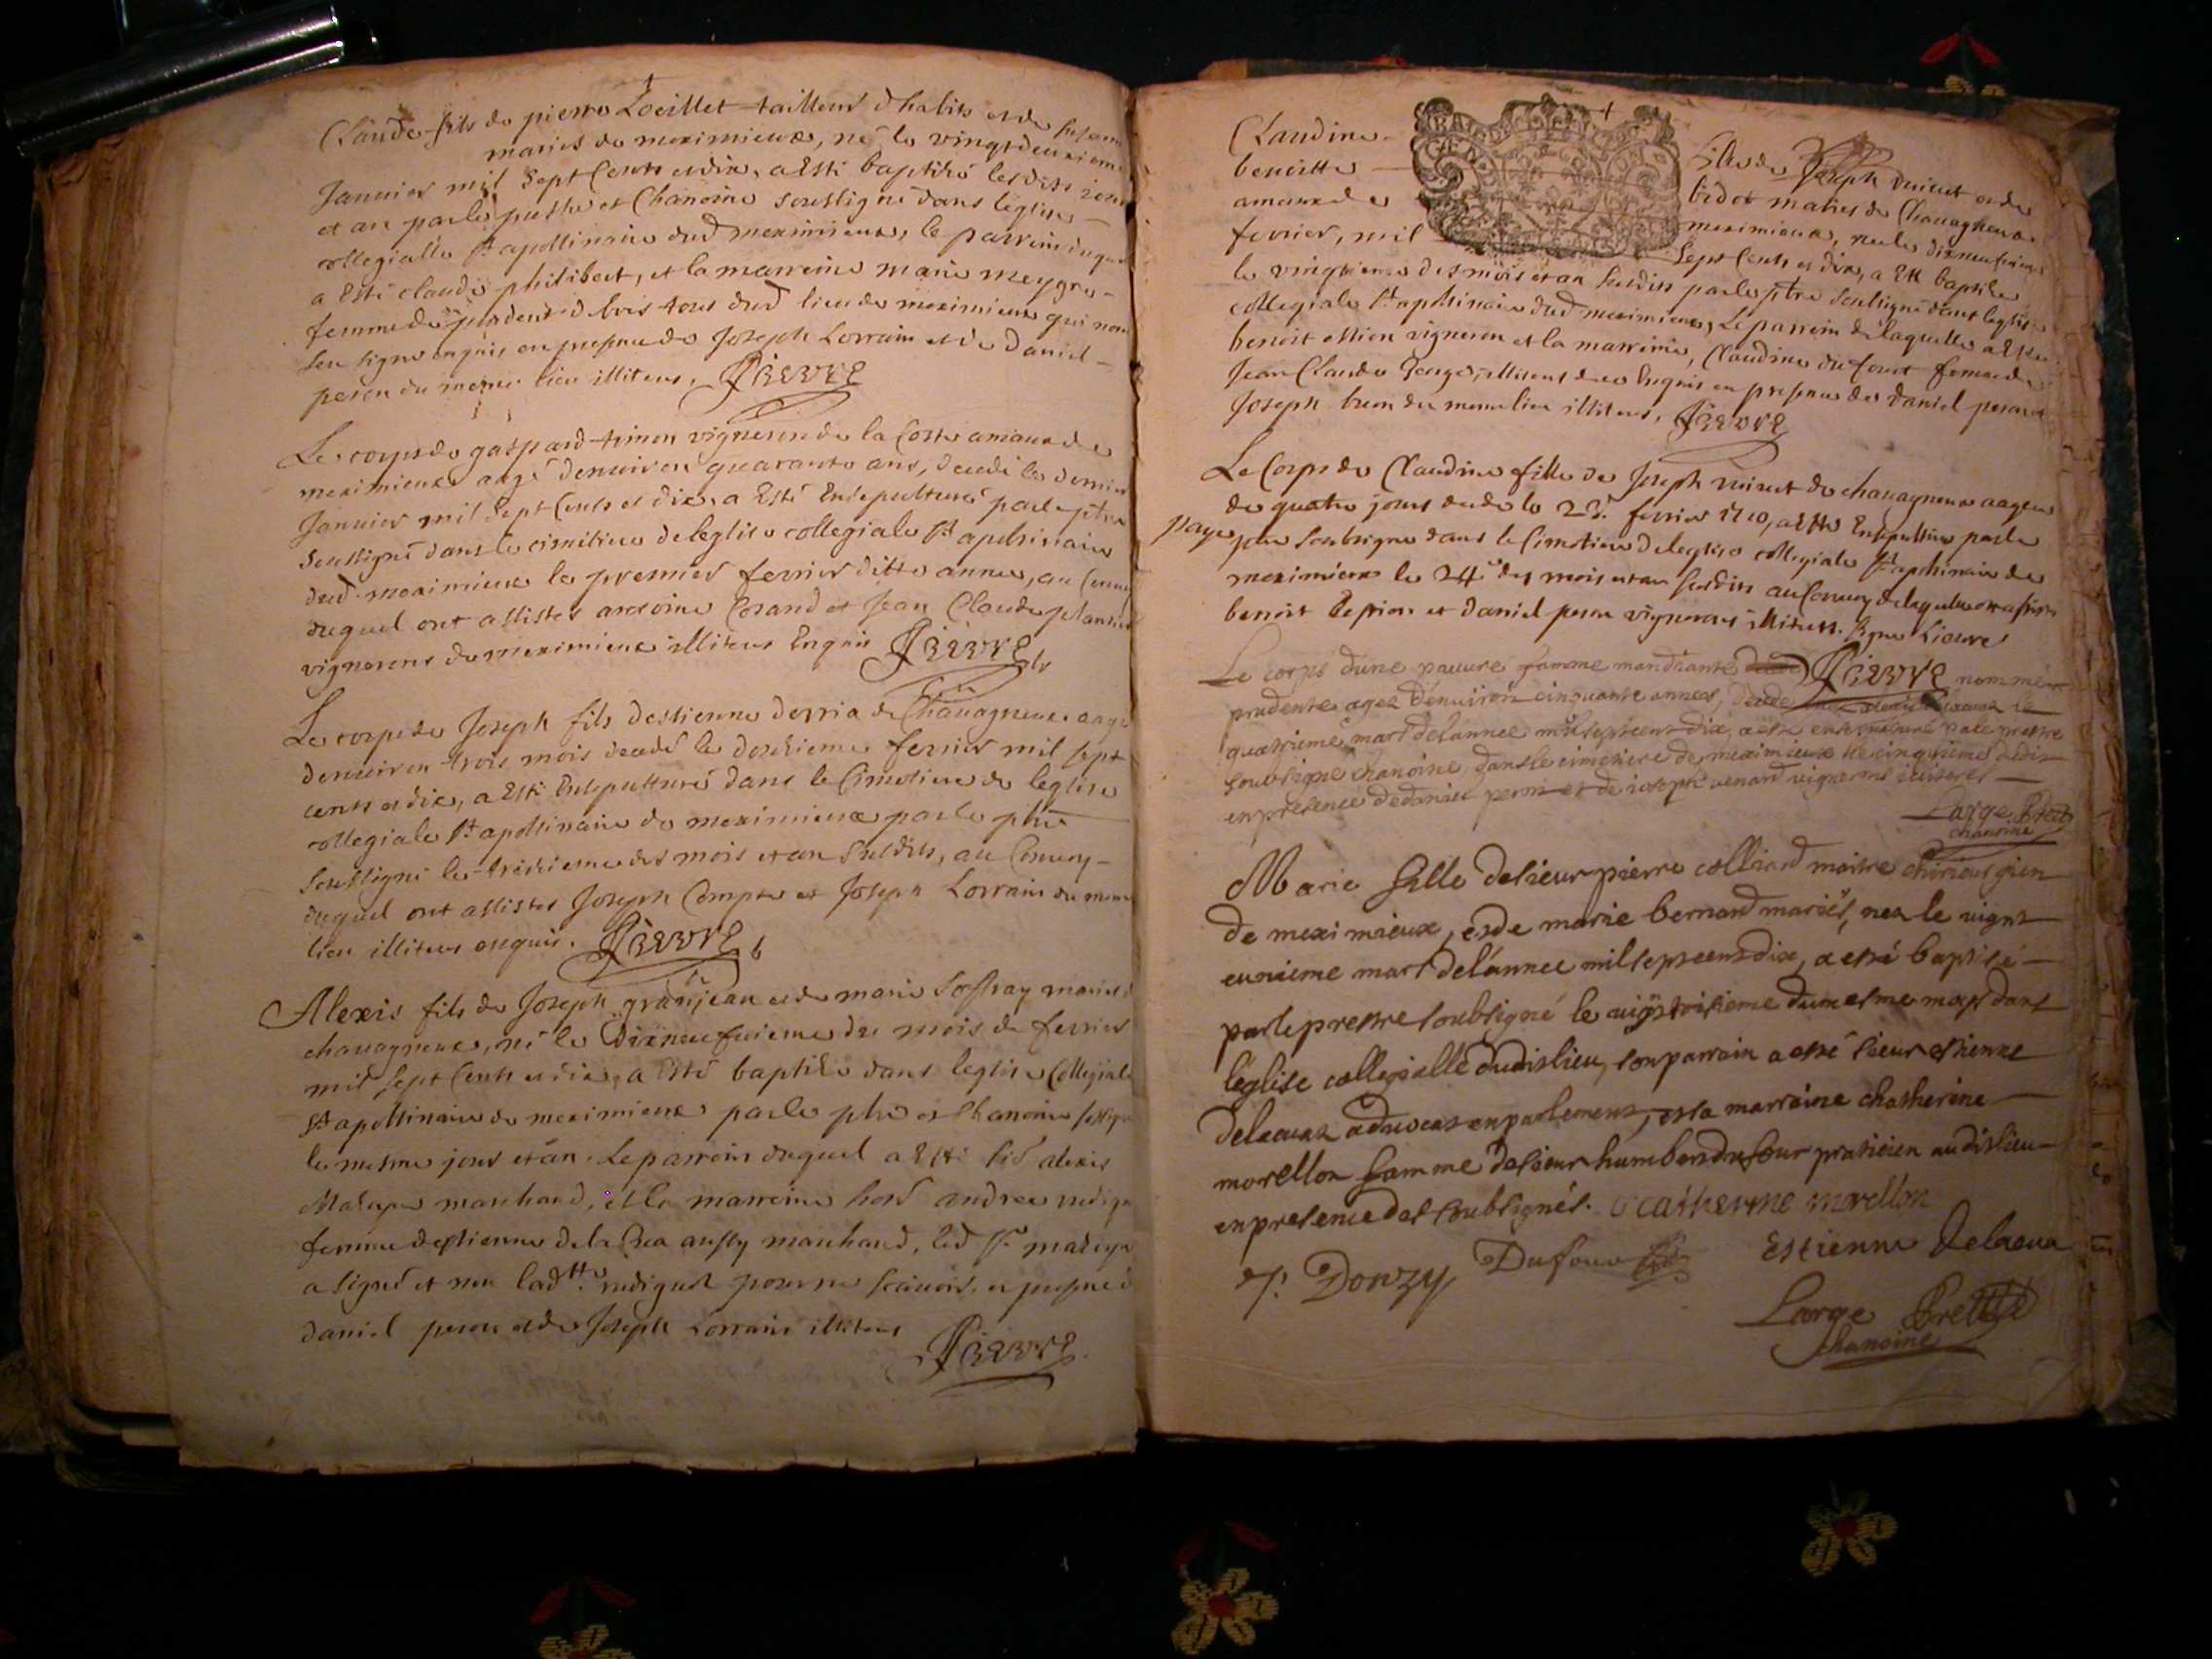 Claude fils de pierre Loeillet tailleur dhabits et de
maries de meximieux, né le vingtdeuxieme
Januier mil sept Cents et dix, a Esté baptisé lesdits jour
et an par le prestre et Chanoine soussigné dans leglise
collegialle St apollinaire dud meximieux, le parrein duquel
a Esté claude philibert, et la marreine marie meygre
femme de prudent dubois tous dud lieu de meximieux qui nont
sceu signer enquis en presence de Joseph Lorrain et de daniel
peron du meme lieu illiteres. Lievre
Le corps de gaspard timon vigneron de la Coste aniaux de
meximieux aagé denuiron quarante ans, decedé le dernier
Januier mil sept Cents et dix, a Esté Ensepulturé par le ptre
soussigné dans le cimetiere de leglise collegiale St apollinaire
dud meximieux le premier feurier ditte année, au Conuoy
duquel ont assistes antoine Corand et Jean Claude
vignerons de meximieux illiteres Enquis Lievre
Le corps de Joseph fils destienne derria de Chauagneux aagé
denuiron trois mois decedé le douzieme feurier mil sept
cents et dix, a Esté Ensepulturé dans le Cimetiere de leglise
collegiale St apollinaire de meximieux par le ptre
soussigné le treizieme des mois et an susdits, au Conuoy
duquel ont assistes Joseph Compte et Joseph Lorrain du meme
lieu illiteres enquis. Lievre
Alexis fils de Joseph granjean et de marie Soffray maries
chauagneux, né le dixneufuieme du mois de feurier
mil sept Cents et dix, a Esté baptisé dans leglise Collegiale
St apollinaire de meximieux par le ptre et Chanoine
le mesme jour et an. Le parrein duquel a Esté alexis
marchand, et la marreine andrée
femme destienne de la Crea aussy marchand, led sr
a signé et non lad pour ne scauoir, en presence de
daniel peron et de Joseph Lorrain illiteres Lievre
Claudine
benoitte fille de Joseph et de
amaux de bidot maries de Chauagneux
feurier, mil meximieux, née le dixneufuieme
Sept Cents et dix, a Esté baptisée
le vingtieme des mois et an susdits par le ptre soussigné dans leglise
collegiale St apollinaire dud meximieux, Le parrein de laquelle a Esté
benoit vigneron et la marreine, Claudine du four femme de
Jean Claude illiteres Enquis en presence de daniel peron
Joseph du meme lieu illiteres, Lievre
Le Corps de Claudine fille de Joseph de chauagneux aagée
de quatre jours decedée le 23e feurier 1710, a Esté Ensepulturée par le
soubsigné dans le Cimetiere de leglise collegiale St apollinaire de
meximieux le 24e des mois et an susdits au Conuoy de laquelle ont assistes
benoit et daniel peron vignerons illiteres. signé Lieure
Le corps dune pauure famme mandiante Lievre nommée
prudente agez denuiron cinquante années, le
quatrieme mars delannee milseptcent dix, a esté ensepulturé par le prestre
soubsigné chanoine, dans le cimetiere de meximieux le cinquieme dudit
en presence de daniel peron et de ioseph uenard uignerons
Large Pretre
chanoine
Marie fille de sieur pierre colliard maitre chirurgien
de meximieux, et de marie bernard mariés, nez le uignt
eunieme mars delannee milseptcent dix, a esté baptisé
par le prestre soubsigné le uigtroisieme dumesme moys dans
leglise collegialle dudislieu, son parrain a esté sieur estienne
delacuaz aduocat en parlement, et sa marraine chatherine
morellon famme de sieur humbert dufour praticien audislieu
en presence des soubsignés. catherine morellon
Donzy Dufour Estienne Delacua
Large Pretre
chanoine